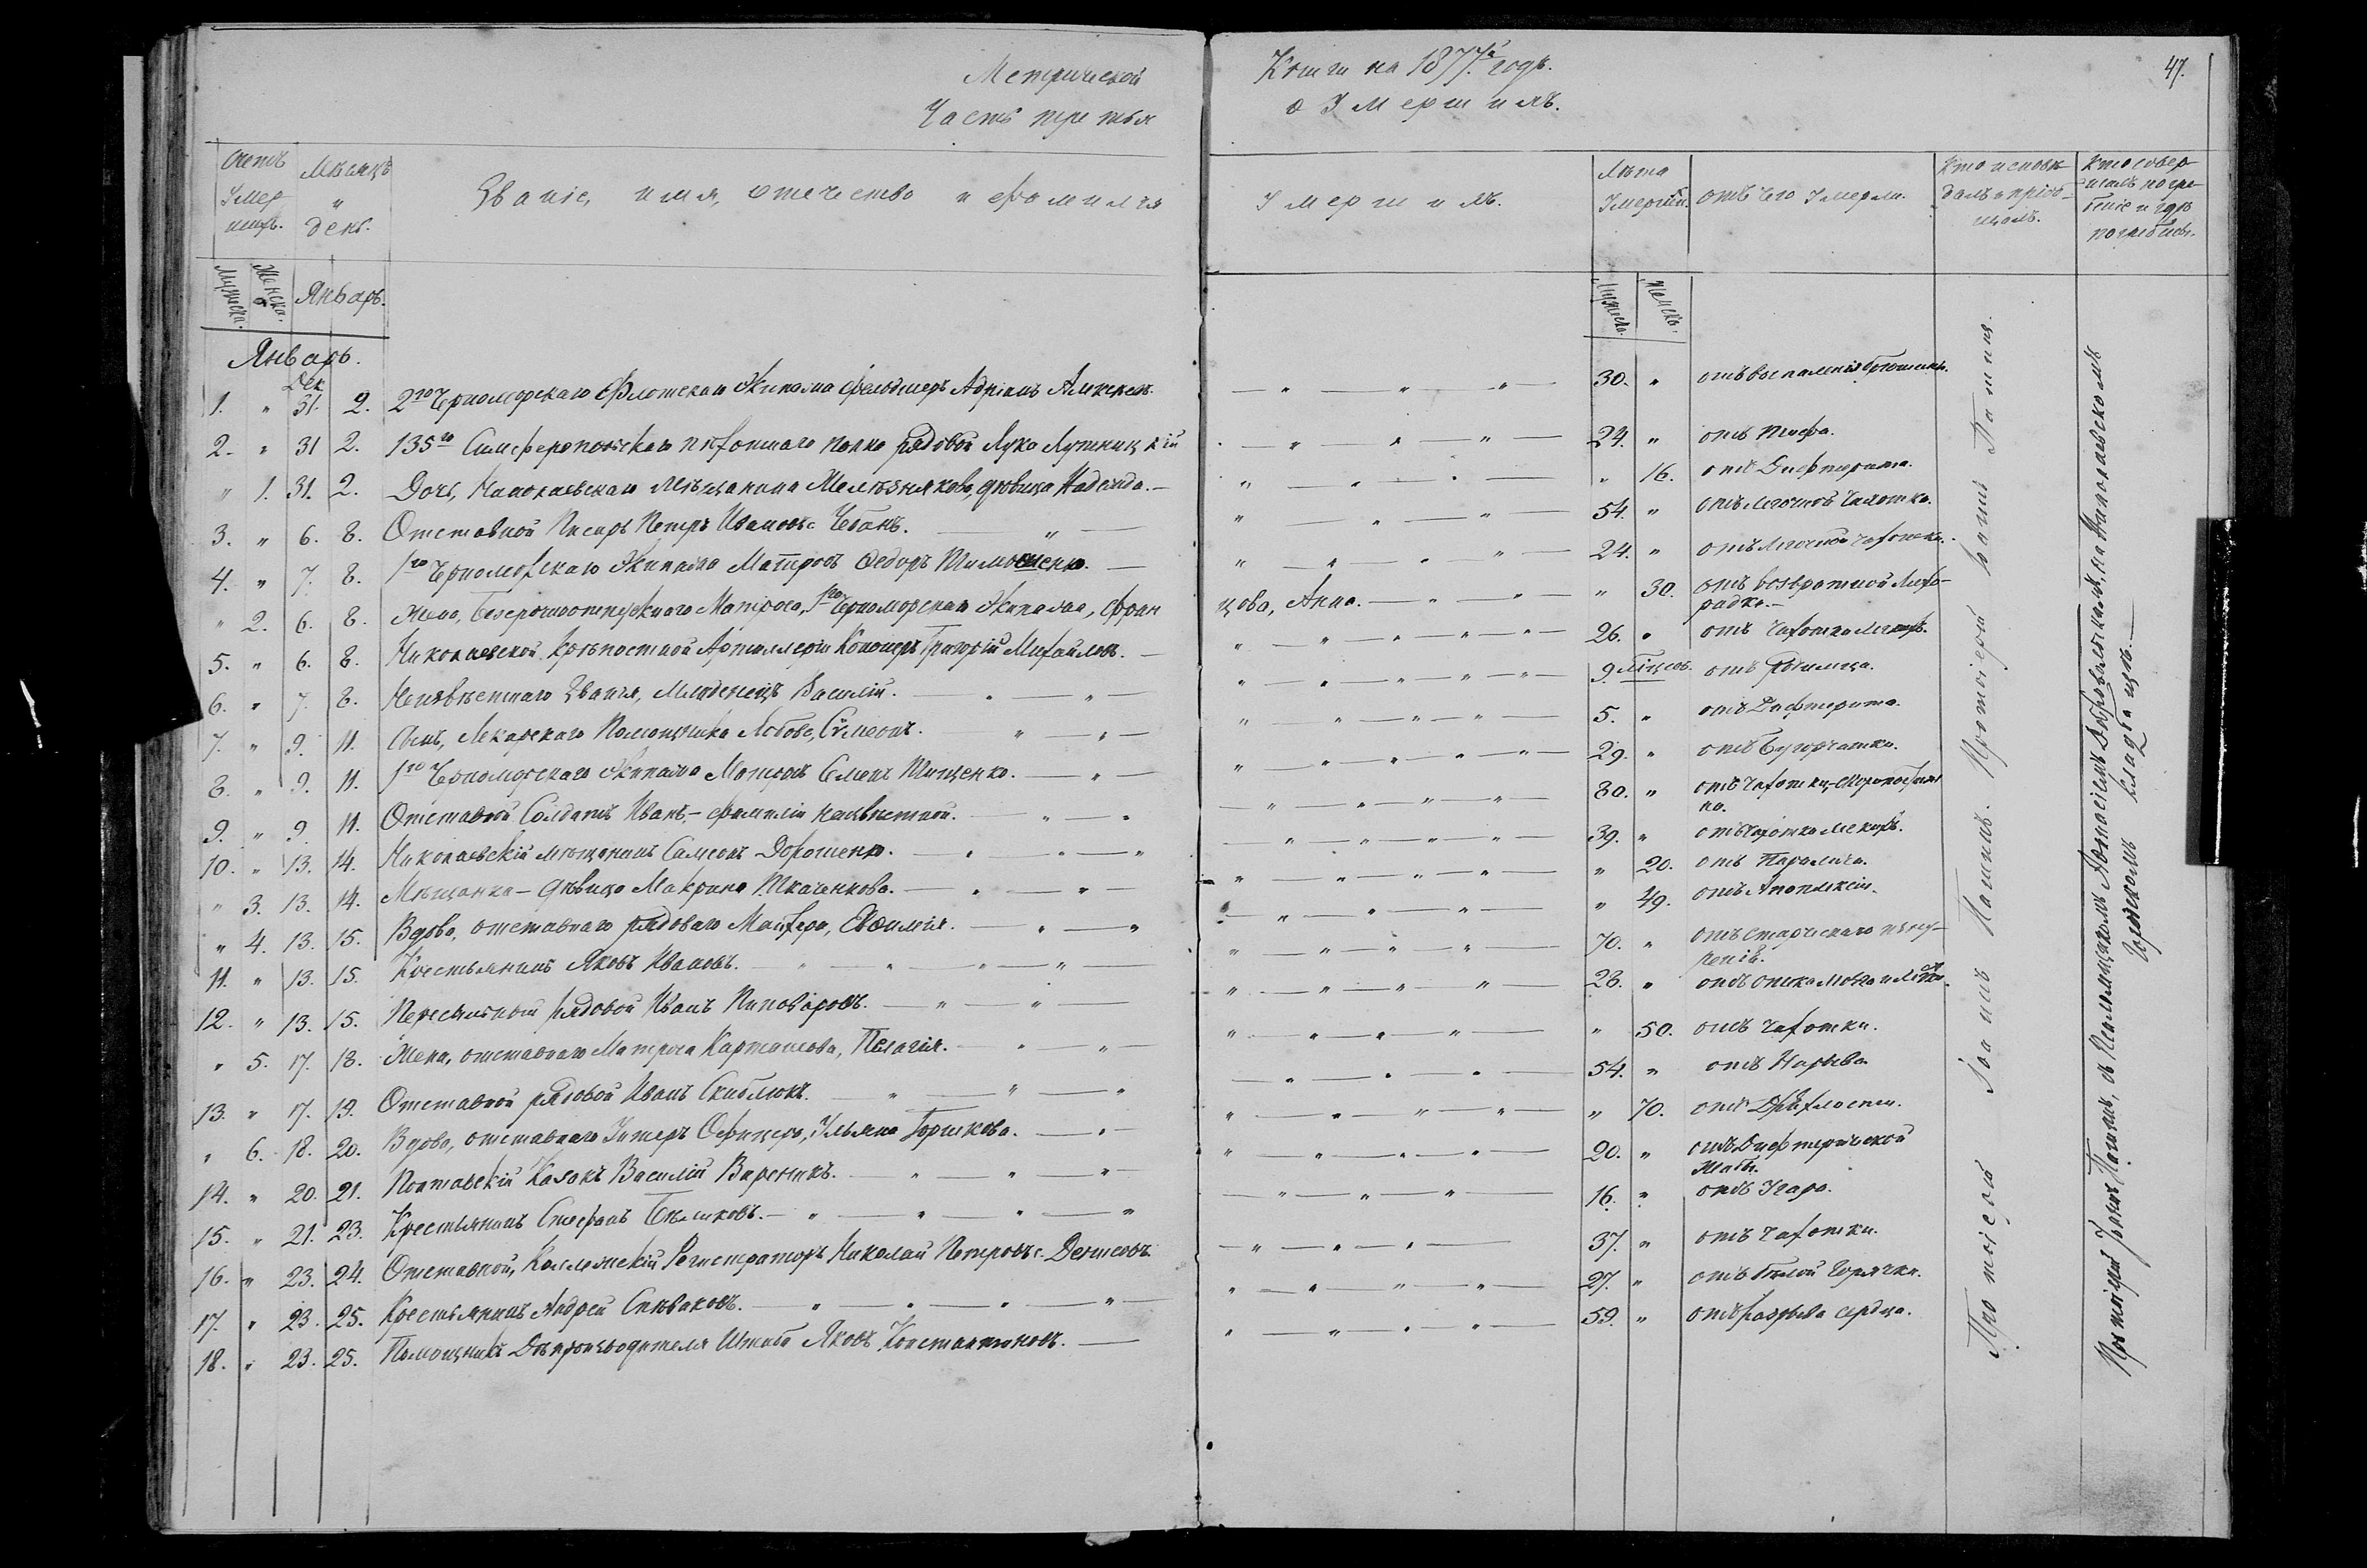 Метрической Книги на 1877й годъ.
Часть третья о Умершихъ.
47.
Счетъ Умершихъ.
Мѣсяцъ и день.
Званіе, имя, отечество и фамилія Умершихъ.
Лѣта Умершихъ.
Отъ чего Умерли.
Кто исповѣдалъ и пріобщалъ.
Кто совершалъ погребеніе и гдѣ погребены.
Мужеска. Женска. Январь. Мужеска. Женска.
Январь.
Дек.
1. " 31. 2. 2го Черноморскаго Флотскаго Экипажа фельдшеръ Адріанъ Алексѣевъ. 30. " отъ воспаленія брюшины.
2. " 31 2. 135го Симферопольскаго пѣхотнаго полка рядовой Лука Лутницкій 24. " отъ тифа.
" 1. 31. 2. Дочь, Николаевскаго мѣщанина Желѣзнякова, дѣвица Надежда. " 16. отъ Дифтерита.
3. " 6. 8. Отставной Писарь Петръ Ивановъ с. Чебанъ. 54. " отъ легочной Чахотки.
4. " 7. 8. 1го Черноморскаго Экипажа Матросъ Ѳедоръ Тимошенко. 24. " отъ легочной чахотки.
" 2. 6. 8. Жена, безсрочноотпускнаго Матроса, 1го Черноморскаго Экипажа, Францова, Анна. " 30. отъ возвратной Лихорадки.
5. " 6. 8. Николаевской Крѣпостной Артиллеріи Канониръ Григорій Михайловъ. 26. " отъ Чахотки легкихъ.
6. " 7. 8. Неизвѣстнаго Званія, Младенецъ Василій. 9. Мѣсяцов. отъ Родимца.
7. " 9. 11. Сынъ, Лекарскаго Помощника Лобова, Сѵмеонъ. 5. " отъ Дифтерита.
8. " 9. 11. 1го Черноморскаго Экипажа Матросъ Семенъ Тищенко. 29. " отъ Бугорчатки.
9. " 9. 11. Отставной Солдатъ Иванъ, – фамиліи неизвѣстной. 80. " отъ Чахотки, скоропостижно.
10. " 13. 14. Николаевскій мѣщанинъ Самсонъ Дорошенко. 39. " отъ Чахотки легкихъ.
" 3. 13. 14. Мѣщанка – дѣвица Макрина Ткаченкова. " 20. отъ Паралича.
" 4. 13. 15. Вдова, отставнаго рядоваго, Евѳимія. " 49. отъ Апоплексіи.
11. " 13. 15. Крестьянинъ Яковъ Ивановъ. 70. " отъ Старческаго изнуренія.
12. " 13. 15. Пересыльный рядовой Иванъ Пиповаровъ. 28. " отъ отека мозга и легких.
" 5. 17. 18. Жена, отставнаго Матроса Карташова, Пелагія. " 50. отъ чахотки.
13. " 17. 19. Отставной рядовой Иванъ Скиблюкъ. 54. " отъ Нарыва.
" 6. 18. 20. Вдова, отставнаго Унтеръ Офицера, Ульяна Горшкова. " 70. отъ Дряхлости.
14. " 20. 21. Полтавскій Казакъ Василій Вареникъ. 20. " отъ Дифтерической Жабы.
15. " 21. 23. Крестьянинъ Стефанъ Бѣликовъ. 16. " отъ Угара.
16. " 23. 24. Отставной, Коллежскій Регистраторъ Николай Петровъ с. Денисовъ 37. " отъ чахотки.
17. " 23. 25. Крестьянинъ Андрей Спиваковъ. 27. " отъ бѣлой Горячки.
18. " 23. 25. Помощникъ Дѣлопроизводителя Штаба Яковъ Константиновъ. 59. " отъ разрыва сердца.
Протоіерей Іоаннъ Пашинъ. Протоіерей Іоаннъ Пашинъ.
Протоіерей Іоаннъ Пашинъ, съ Псаломщикомъ Аѳанасіемъ Добровольскимъ, на Николаевскомъ
Городскомъ кладбищѣ.